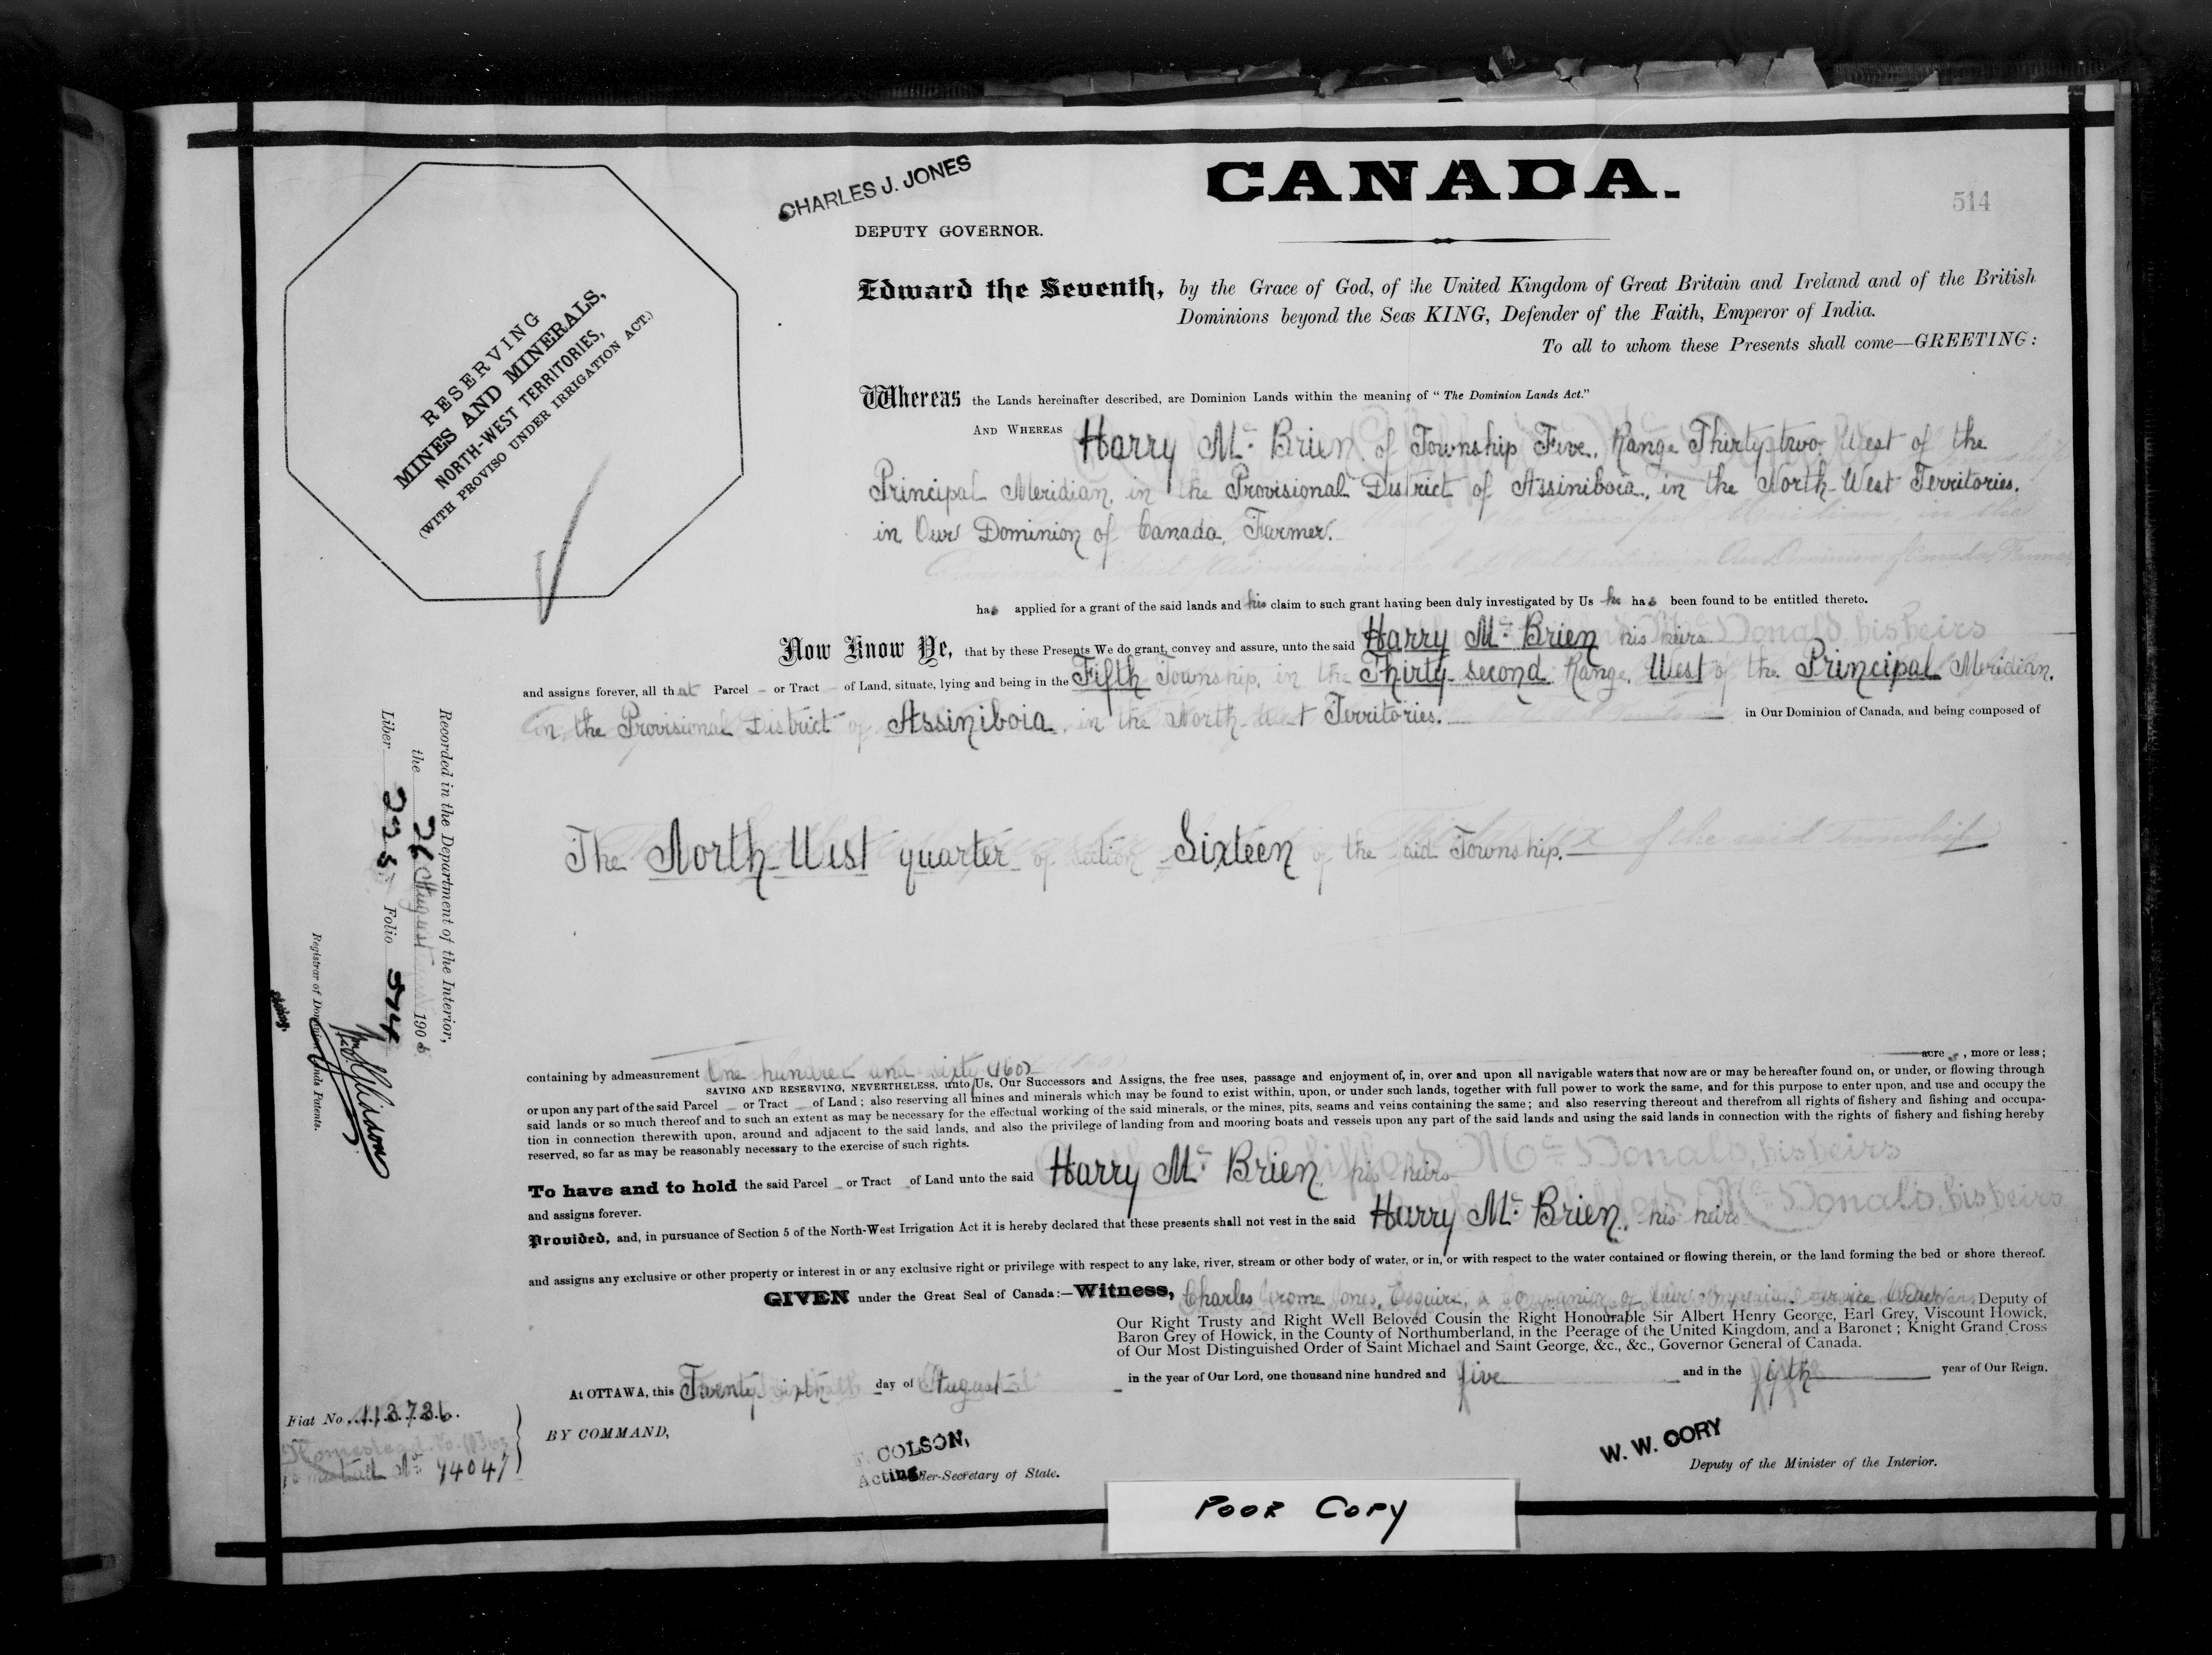 CANADA.
514
CHARLES J. JONES
DEPUTY GOVERNOR.
RESERVING
MINES AND MINERALS,
NORTH-WEST TERRITORIES,
(WITH PROVISO UNDER IRRIGATION ACT.)
Edward the Seventh, by the Grace of God, of the United Kingdom of Great Britain and Ireland and of the British
Dominions beyond the Seas KING, Defender of the Faith, Emperor of India.
To all to whom these Presents shall come—GREETING:
Whereas the Lands hereinafter described, are Dominion Lands within the meaning of "The Dominion Lands Act."
AND WHEREAS Harry Mc Brien of Township Five, Range Thirty-two West of the
Principal Meridian, in the Provisional District of Assiniboia, in the North-West Territories,
in Our Dominion of Canada, Farmer.
has applied for a grant of the said lands and his claim to such grant having been duly investigated by Us he has been found to be entitled thereto.
Now Know Ye, that by these Presents We do grant, convey and assure, unto the said Harry Mc Brien his heirs
and assigns forever, all that Parcel – or Tract – of Land, situate, lying and being in the Fifth Township, in the Thirty-second Range, West of the Principal Meridian,
in the Provisional District of Assiniboia, in the North-West Territories. in Our Dominion of Canada, and being composed of
The North-West quarter of Section Sixteen of the said Township.
Recorded in the Department of the Interior,
the 26 August 1905
Liber 225 Folio 514
Registrar of Dominion Lands Patents.
containing by admeasurement One hundred and sixty (160) acres, more or less;
SAVING AND RESERVING, NEVERTHELESS, unto Us, Our Successors and Assigns, the free uses, passage and enjoyment of, in, over and upon all navigable waters that now are or may be hereafter found on, or under, or flowing through
or upon any part of the said Parcel – or Tract – of Land; also reserving all mines and minerals which may be found to exist within, upon, or under such lands, together with full power to work the same, and for this purpose to enter upon, and use and occupy the
said lands or so much thereof and to such an extent as may be necessary for the effectual working of the said minerals, or the mines, pits, seams and veins containing the same; and also reserving thereout and therefrom all rights of fishery and fishing and occupa-
tion in connection therewith upon, around and adjacent to the said lands, and also the privilege of landing from and mooring boats and vessels upon any part of the said lands and using the said lands in connection with the rights of fishery and fishing hereby
reserved, so far as may be reasonably necessary to the exercise of such rights.
To have and to hold the said Parcel – or Tract – of Land unto the said Harry Mc Brien, his heirs
and assigns forever.
Provided, and, in pursuance of Section 5 of the North-West Irrigation Act it is hereby declared that these presents shall not vest in the said Harry Mc Brien, his heirs
and assigns any exclusive or other property or interest in or any exclusive right or privilege with respect to any lake, river, stream or other body of water, or in, or with respect to the water contained or flowing therein, or the land forming the bed or shore thereof.
GIVEN under the Great Seal of Canada:—Witness, Charles Jerome Jones, Esquire, a Companion of Our Imperial Service Order, Deputy of
Our Right Trusty and Right Well Beloved Cousin the Right Honourable Sir Albert Henry George, Earl Grey, Viscount Howick,
Baron Grey of Howick, in the County of Northumberland, in the Peerage of the United Kingdom, and a Baronet; Knight Grand Cross
of Our Most Distinguished Order of Saint Michael and Saint George, &c., &c., Governor General of Canada.
At OTTAWA, this Twenty sixth day of August in the year of Our Lord, one thousand nine hundred and five and in the fifth year of Our Reign.
Fiat No. 113736.
Homestead No 94047
BY COMMAND,
COLSON,
Acting Under-Secretary of State.
W. W. CORY
Deputy of the Minister of the Interior.
POOR COPY